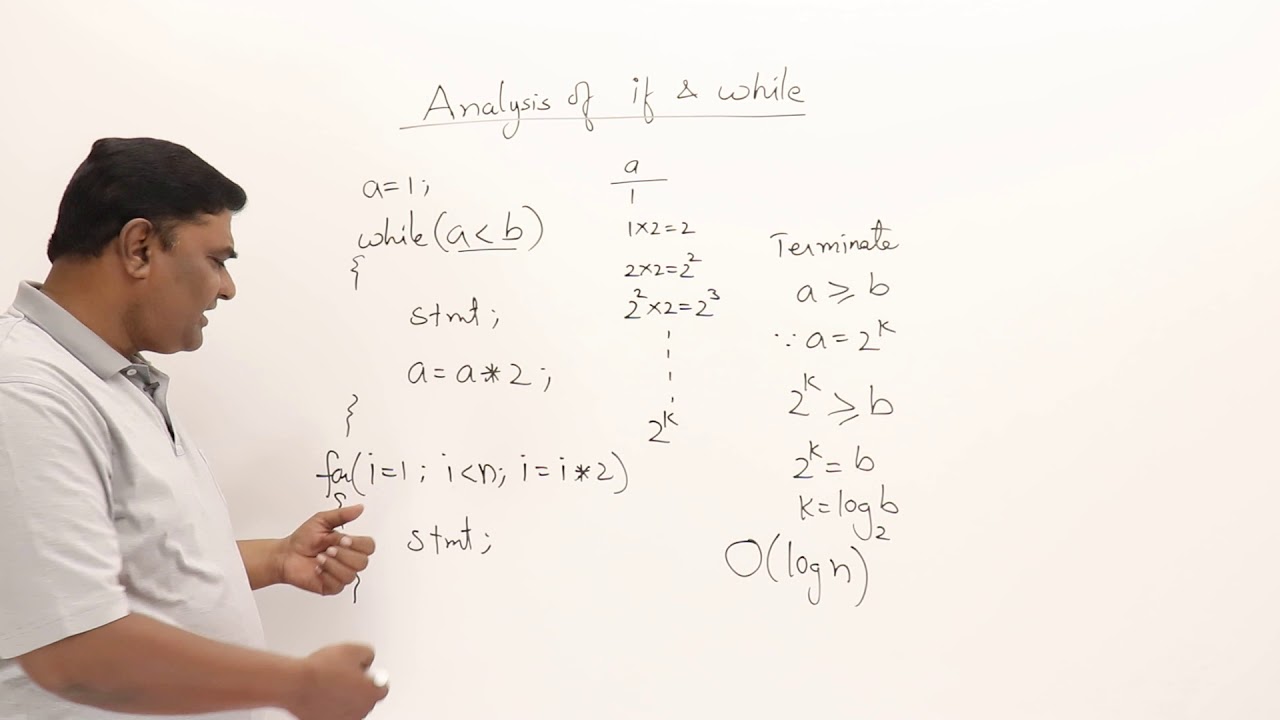 Analysis of if & while
a=1;
while(a<b)
{
stmt;
a=a*2;
}
for(i=1; i<n; i=i*2)
{
stmt;
}
a
1
1×2=2
2×2=2²
2²×2=2³
2ᵏ
Terminate
a≥b
∵a=2ᵏ
2ᵏ≥b
2ᵏ=b
k=log₂b
O(logn)